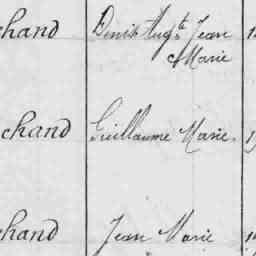 chand Denis Aug.te Jean
& Marie
chand Guillaume Marie
chand Jean Marie